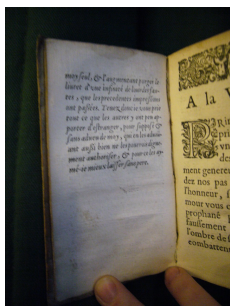 moy seul, & l'augmentant purger le
livret d'une infinité de lourdes fau-
tes, que les precedentes impressions
ont passées. Tenez donc ie vous prie
tout ce que les autres y ont peu ap-
porter d'estranger, pour supposé &
sans adveu de moy, qui en les advou-
ant aussi bien ne les pourrois digne-
ment authoriser, & pour ce les ay-
mé-ie mieux laisser sans pere.
A la V
ment genereu
dez nos pas
l'honneur, f
mour vous e
prophané
faussement
l'ombre de
combatten